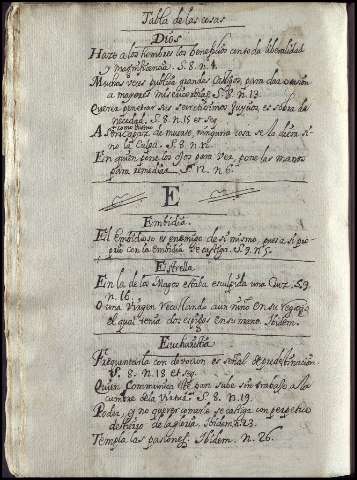 Tabla de las cosas
Dios
Haze a los hombres los beneficios con toda liberalidad
y magnificencia. S. 8. n. 4.
Muchas veces publica grandes castigos, para dar
a mayores misericordias. S. 8. n. 13.
Querer penetrar sus secretissimos juyzios, es sobra de
necedad. S. 8. n. 15 et seq.
como bueno
A ser capaz de muerte, ninguna cosa se la diera si
no la Culpa. S. 8. n. 12.
En quien pone los ojos para ver, pone las manos
para remediar. S. 12. n. 6.
E
Embidia.
El Embidioso es enemigo de si mismo, pues a si pro
prio con la embidia se castiga. S. 9. n. 5.
Estrella
En la de los Magos estaba esculpida una Cruz. S. 9.
n. 16
O una Virgen recostando a un niño en su regazo:
el qual tenia dos en su mano. Ibidem.
Eucharistia
Frequentarla con devocion es señal de predestinacion
S. 8. n. 18 et seq.
Quien Communica este pan sube sin trabajo a la
cumbre de la Virtud. S. 8. n. 19.
Poder, y no querer comerle se castiga con perpetuo
destierro de la gloria. Ibidem. n. 23.
Templa las pasiones. Ibidem. n. 26.